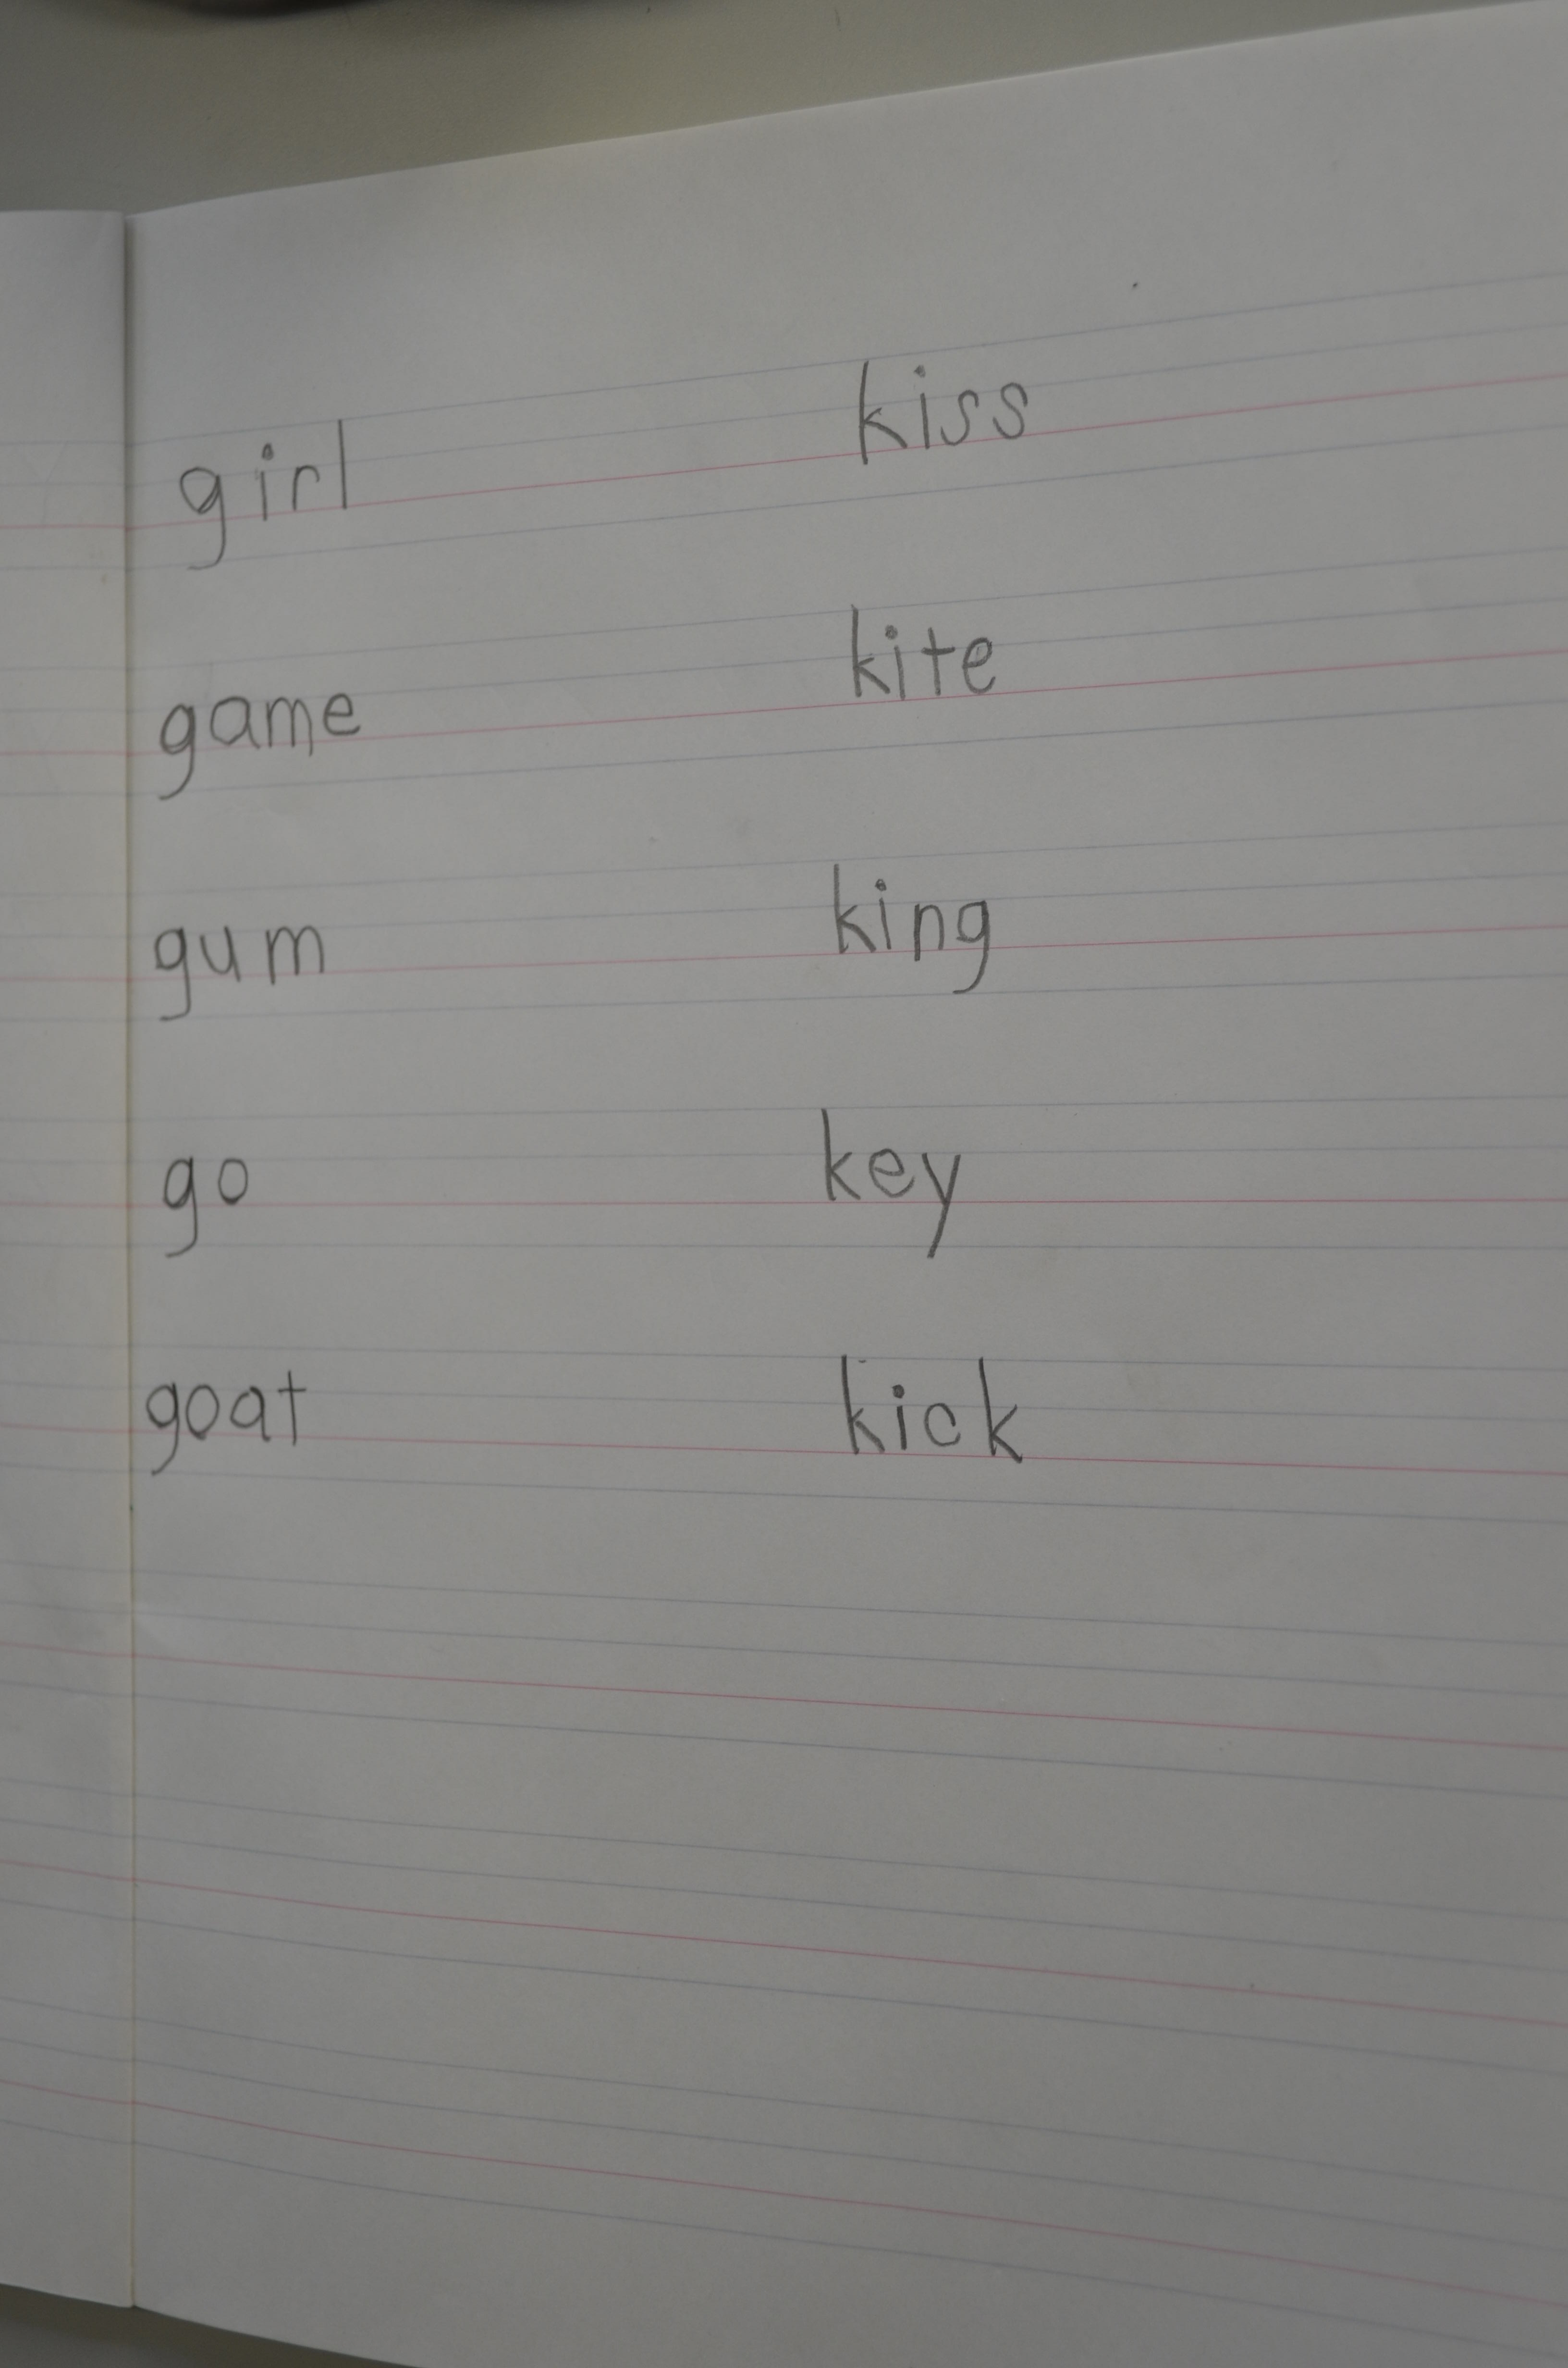 girl kiss
game kite
gum king
go key
goat kick